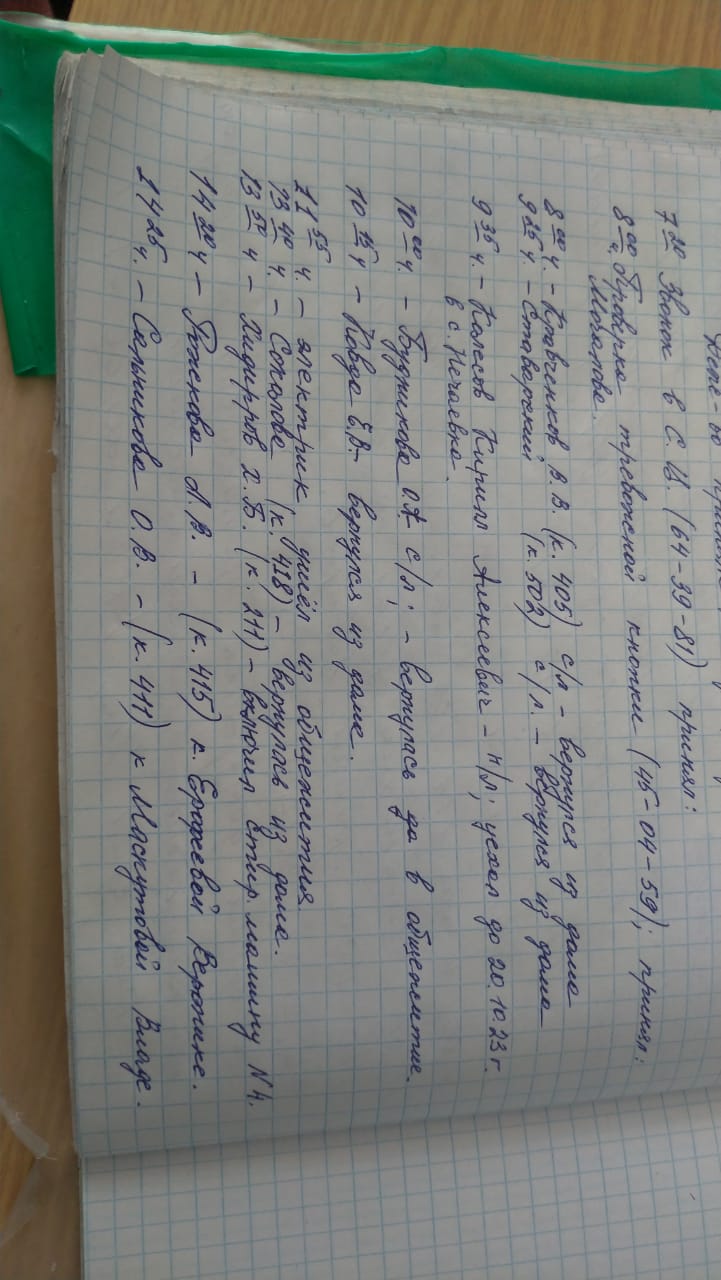 7 20 Звонок в С.Ц. (64-39-81) принял:
8 00 Проверка тревожной кнопки (45-04-59); принял:
8 00 ч. - Кравченков В.В. (к. 405) с/л - вернулся из дома
9 25 ч. - Ставерский (к. 502) с/л. - вернулся из дома
9 35 ч. - Колесов Кирилл Алексеевич - н/л; уехал до 20.10.23 г.
в с. Нечаевка.
10 00 ч. - Будникова О.А с/л; - вернулась в общежитие.
10 15 ч - Ковда Е.В. - вернулся из дома.
11 55 ч. - электрик, ушёл из общежития
13 40 ч. - Соколова (к. 418) - вернулась из дома.
13 50 ч - Хидирров Х.Б. (к. 211) - включил стир. машину N 4.
14 20 ч - Рожкова Л.В. - (к. 415) к. Ерофеевой Веронике.
14 25 ч. - Сальникова О.В. - (к. 411) к Маскутовой Владе.